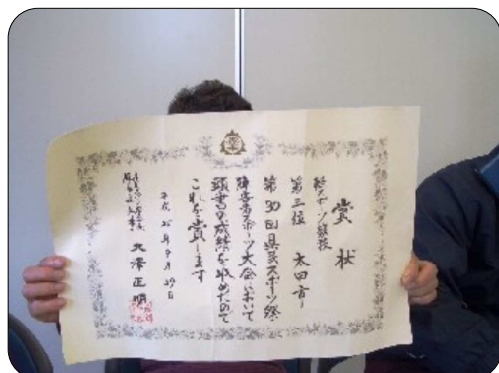 賞状
軽スポーツ競技
第三位 太田市
第30回県民スポーツ祭
障害者スポーツ大会において
頭書の成績を収めたので
これを賞します
平成25年9月29日
大澤正明